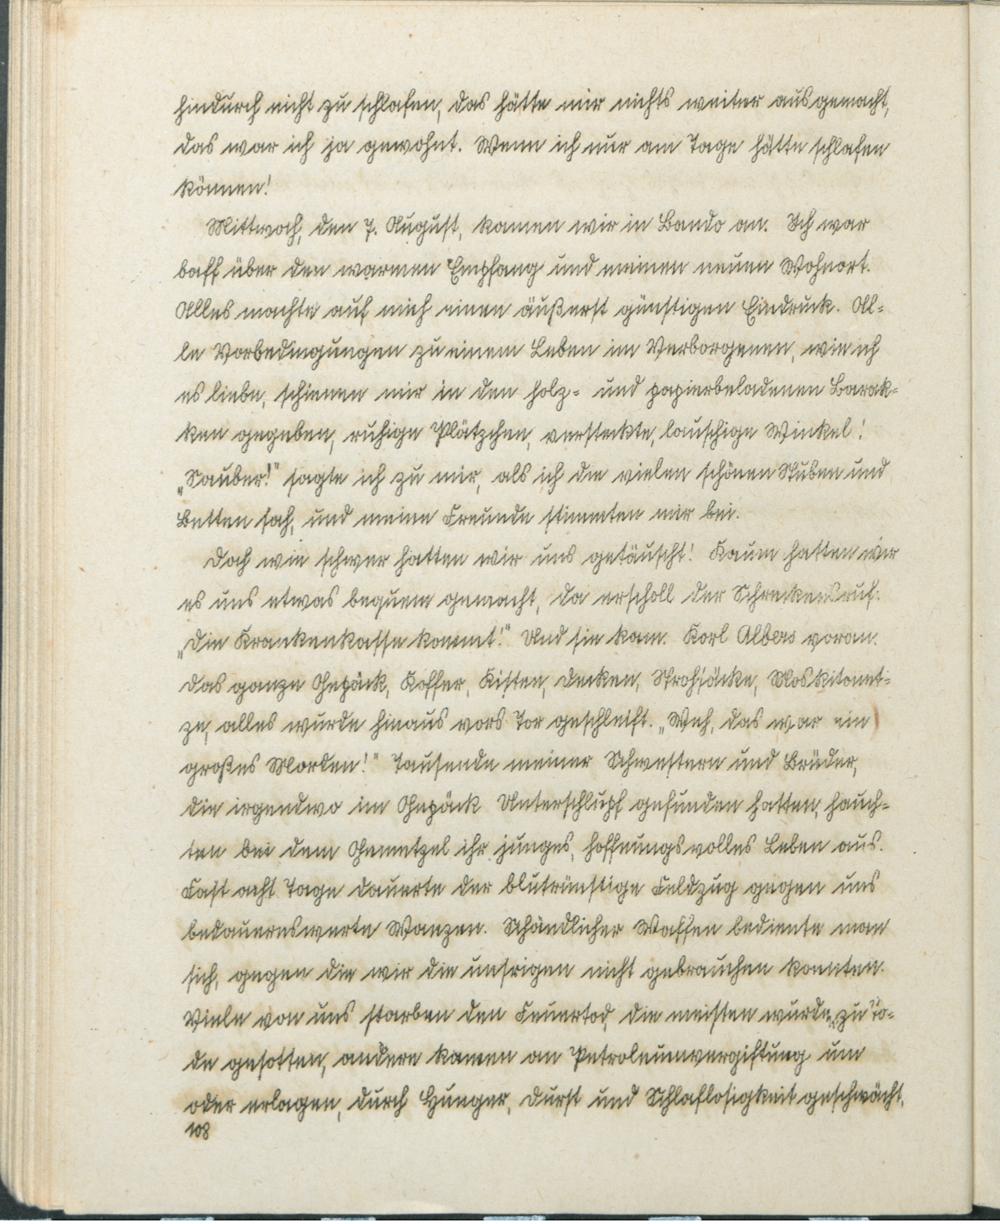 hindurch nicht zu schlafen, das hätte mir nichts weiter ausgemacht,
das war ich ja gewohnt. Wenn ich nur am Tage hätte schlafen
können!
Mittwoch, den 7. August, kamen wir in Bando an. Ich war
baff über den warmen Empfang und meinen neuen Wohnort.
Alles machte auf mich einen äußerst günstigen Eindruck. Al-
le Vorbedingungen zu einem Leben im Verborgenen, wie ich
es liebe, schienen mir in den holz- und papierbeladenen Barak-
ken gegeben, ruhige Plätzchen, versteckte, lauschige Winkel!
„Sauber!" sagte ich zu mir, als ich die vielen schönen Stuben und
Betten sah, und meine Freunde stimmten mir bei.
Doch wie schwer hatten wir uns getäuscht! Kaum hatten wir
es uns etwas bequem gemacht, da erscholl der Schreckensruf:
„Die Krankenkasse kommt!" Und sie kam. Korl Albers voran.
Das ganze Gepäck, Koffer, Kisten, Decken, Strohsäcke, Moskitonet-
ze, alles wurde hinaus vors Tor geschleift. „Weh, das war ein
großes Morden!" Tausende meiner Schwestern und Brüder,
die irgendwo im Gepäck Unterschlupf gefunden hatten, hauch-
ten bei dem Gemetzel ihr junges, hoffnungsvolles Leben aus.
Fast acht Tage dauerte der blutrünstige Feldzug gegen uns
bedauernswerte Wanzen. Schändlicher Waffen bediente man
sich, gegen die wir die unsrigen nicht gebrauchen konnten.
Viele von uns starben den Feuertod, die meisten wurden zu To-
de gesotten, andere kamen an Petroleumvergiftung um
oder erlagen, durch Hunger, Durst und Schlaflosigkeit geschwächt,
108